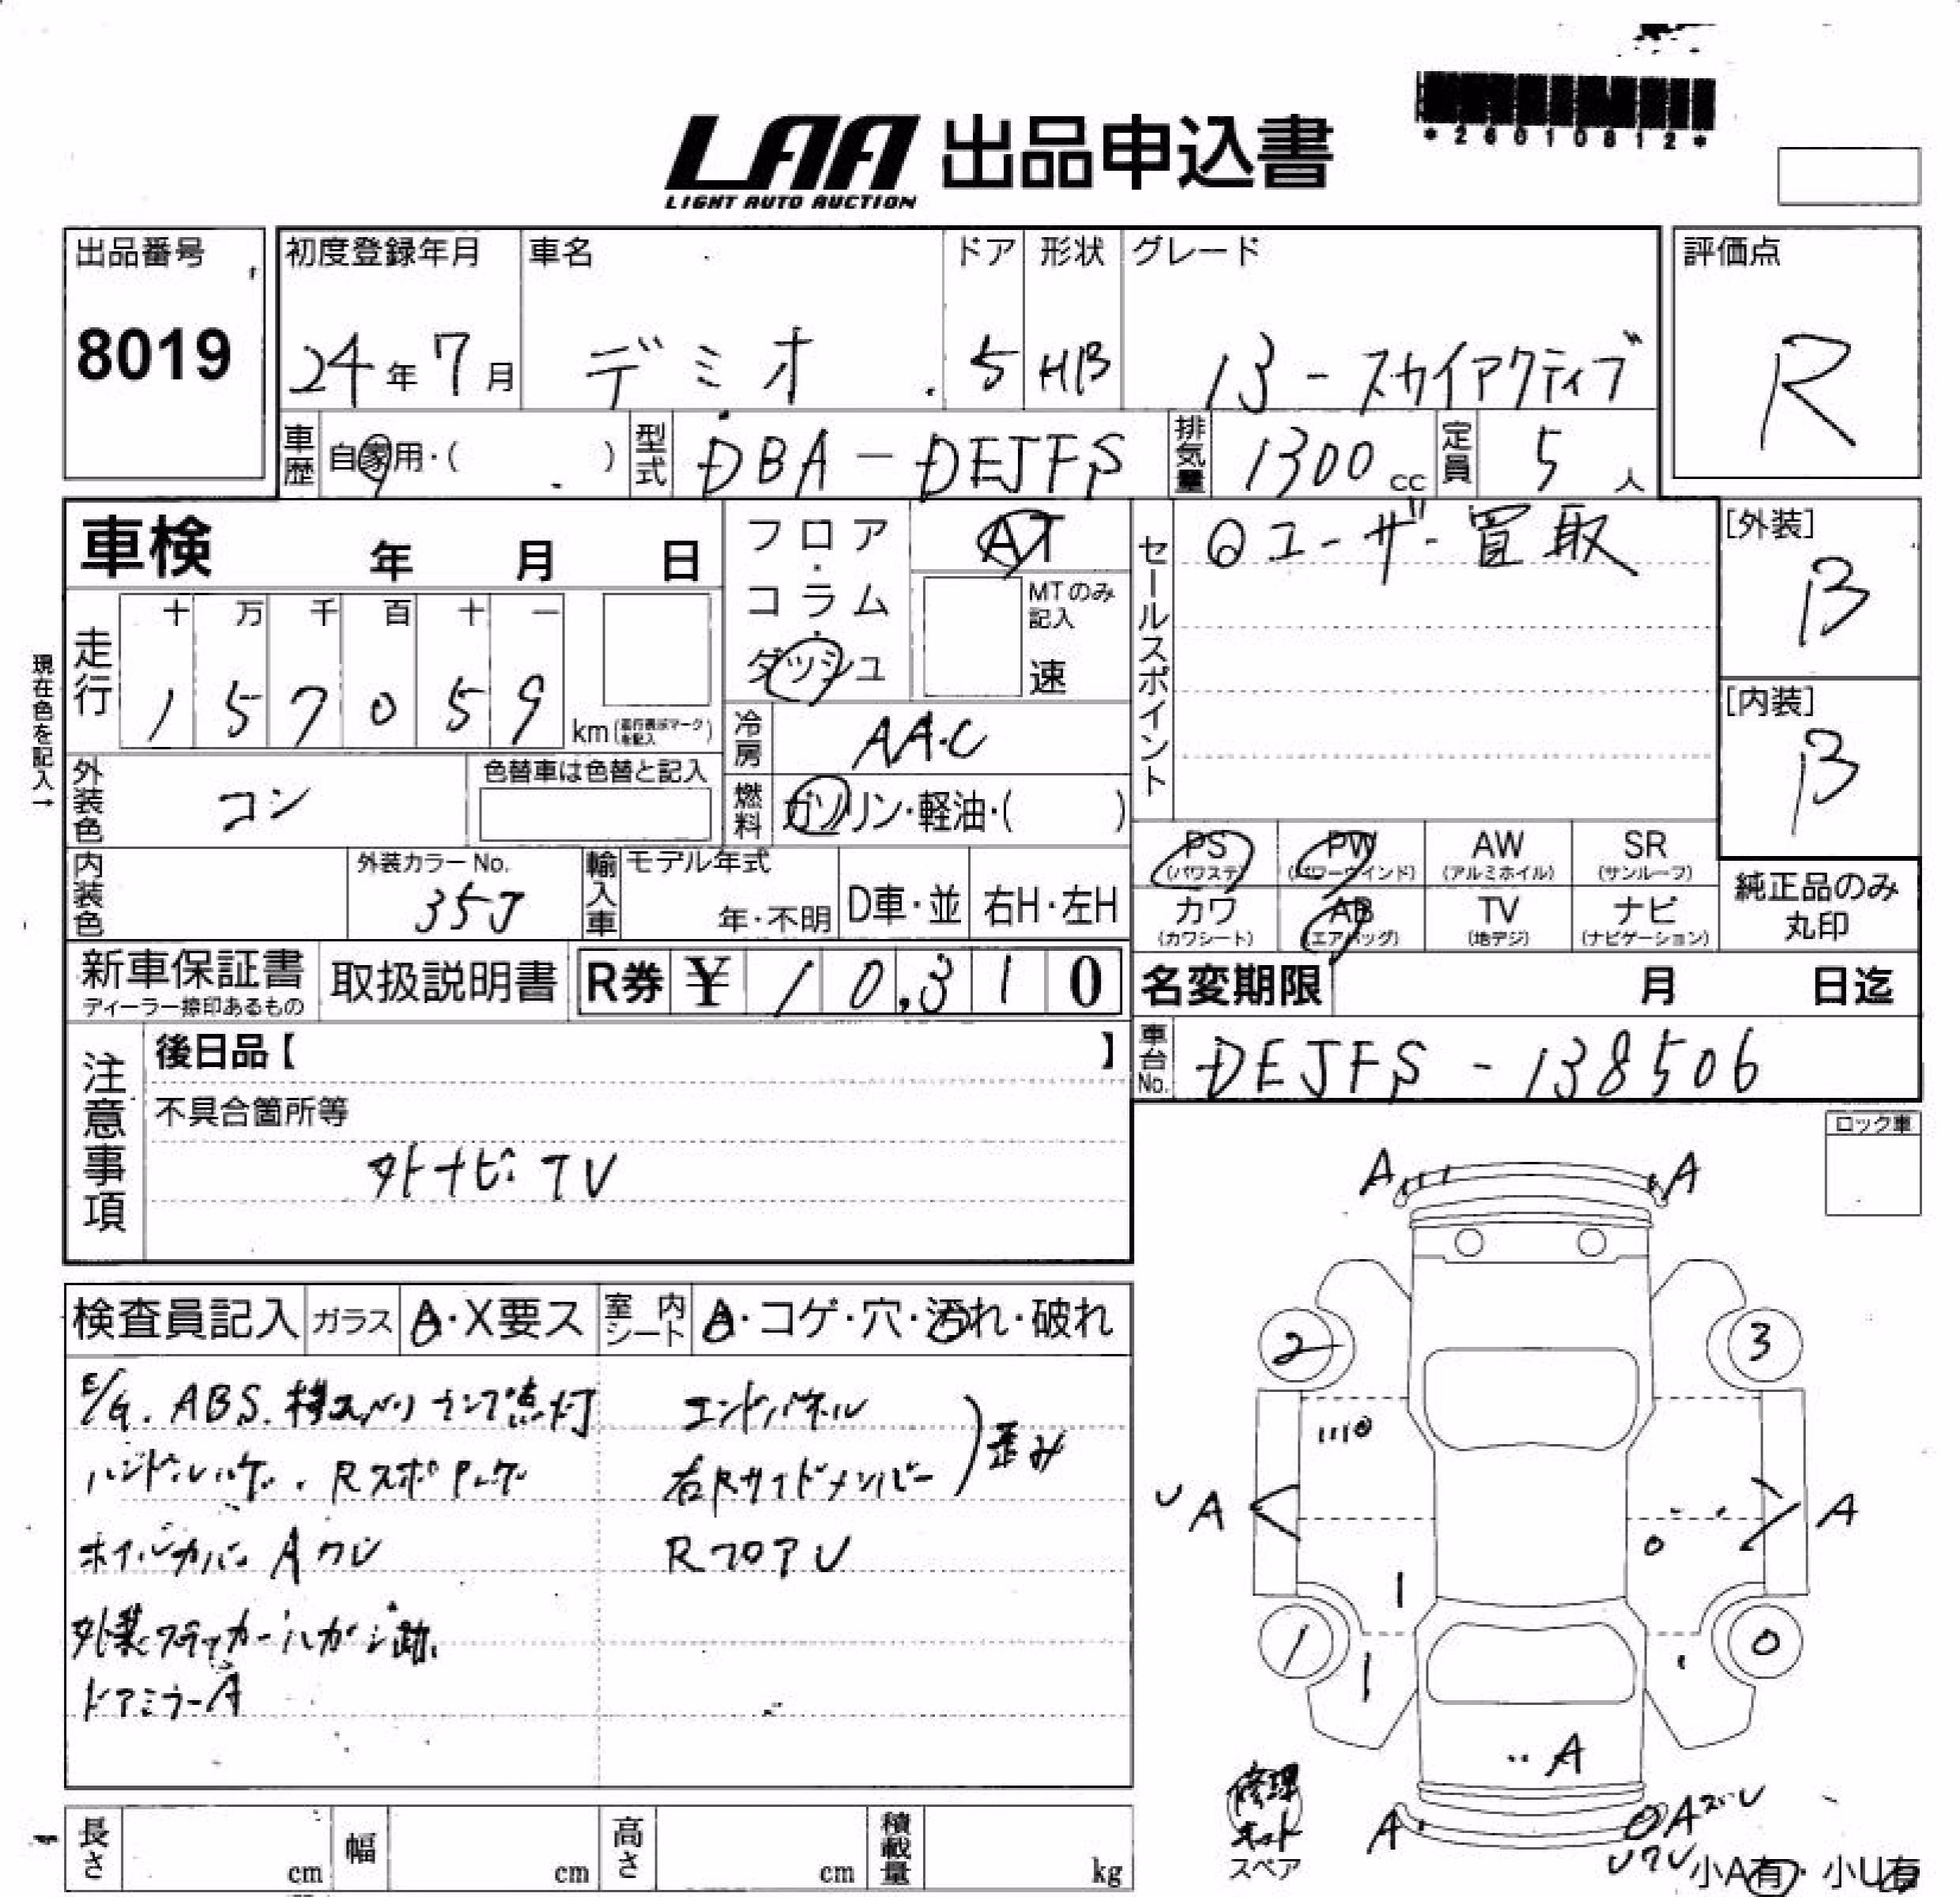 *26010812*
LAA 出品申込書
LIGHT AUTO AUCTION
出品番号
8019
初度登録年月
24年7月
車名
デミオ
ドア
5
形状
HB
グレード
13-スカイアクティブ
評価点
R
車歴
自家用・( )
型式
DBA-DEJFS
排気量
1300cc
定員
5人
車検 年 月 日
フロア・コラム・ダッシュ
AT
MTのみ記入
速
セールスポイント
ユーザー買取
[外装]
B
[内装]
B
現在色を記入→
走行
十 万 千 百 十 一
1 5 7 0 5 9
km(走行表示マークを記入)
冷房
AAC
燃料
ガソリン・軽油・( )
外装色
コン
色替車は色替と記入
PS
(パワステ)
PW
(パワーウインド)
AW
(アルミホイル)
SR
(サンルーフ)
カワ
(カワシート)
AB
(エアバッグ)
TV
(地デジ)
ナビ
(ナビゲーション)
純正品のみ丸印
内装色
外装カラーNo.
35J
輸入車
モデル年式
年・不明
D車・並
右H・左H
新車保証書
ディーラー捺印あるもの
取扱説明書
R券 ¥10,310
名変期限 月 日迄
車台No.
DEJFS-138506
注意事項
後日品【 】
不具合箇所等
外ナビ TV
ロック車
検査員記入
ガラス
A・X要ス
室内シート
A・コゲ・穴・汚れ・破れ
E/G. ABS. 横スベリランプ点灯
ハンドルハゲ. Rスポイラーハゲ
ホイルカバー Aワレ
外装ステッカーハガシ跡
ドアミラーA
エンドパネル
右Rサイドメンバー
歪み
RフロアU
A
A
2
3
UA
A
1
0
A
A
Aズレ
Uワレ
修理キット
スペア
小A有・小U有
長さ cm
幅 cm
高さ cm
積載量 kg